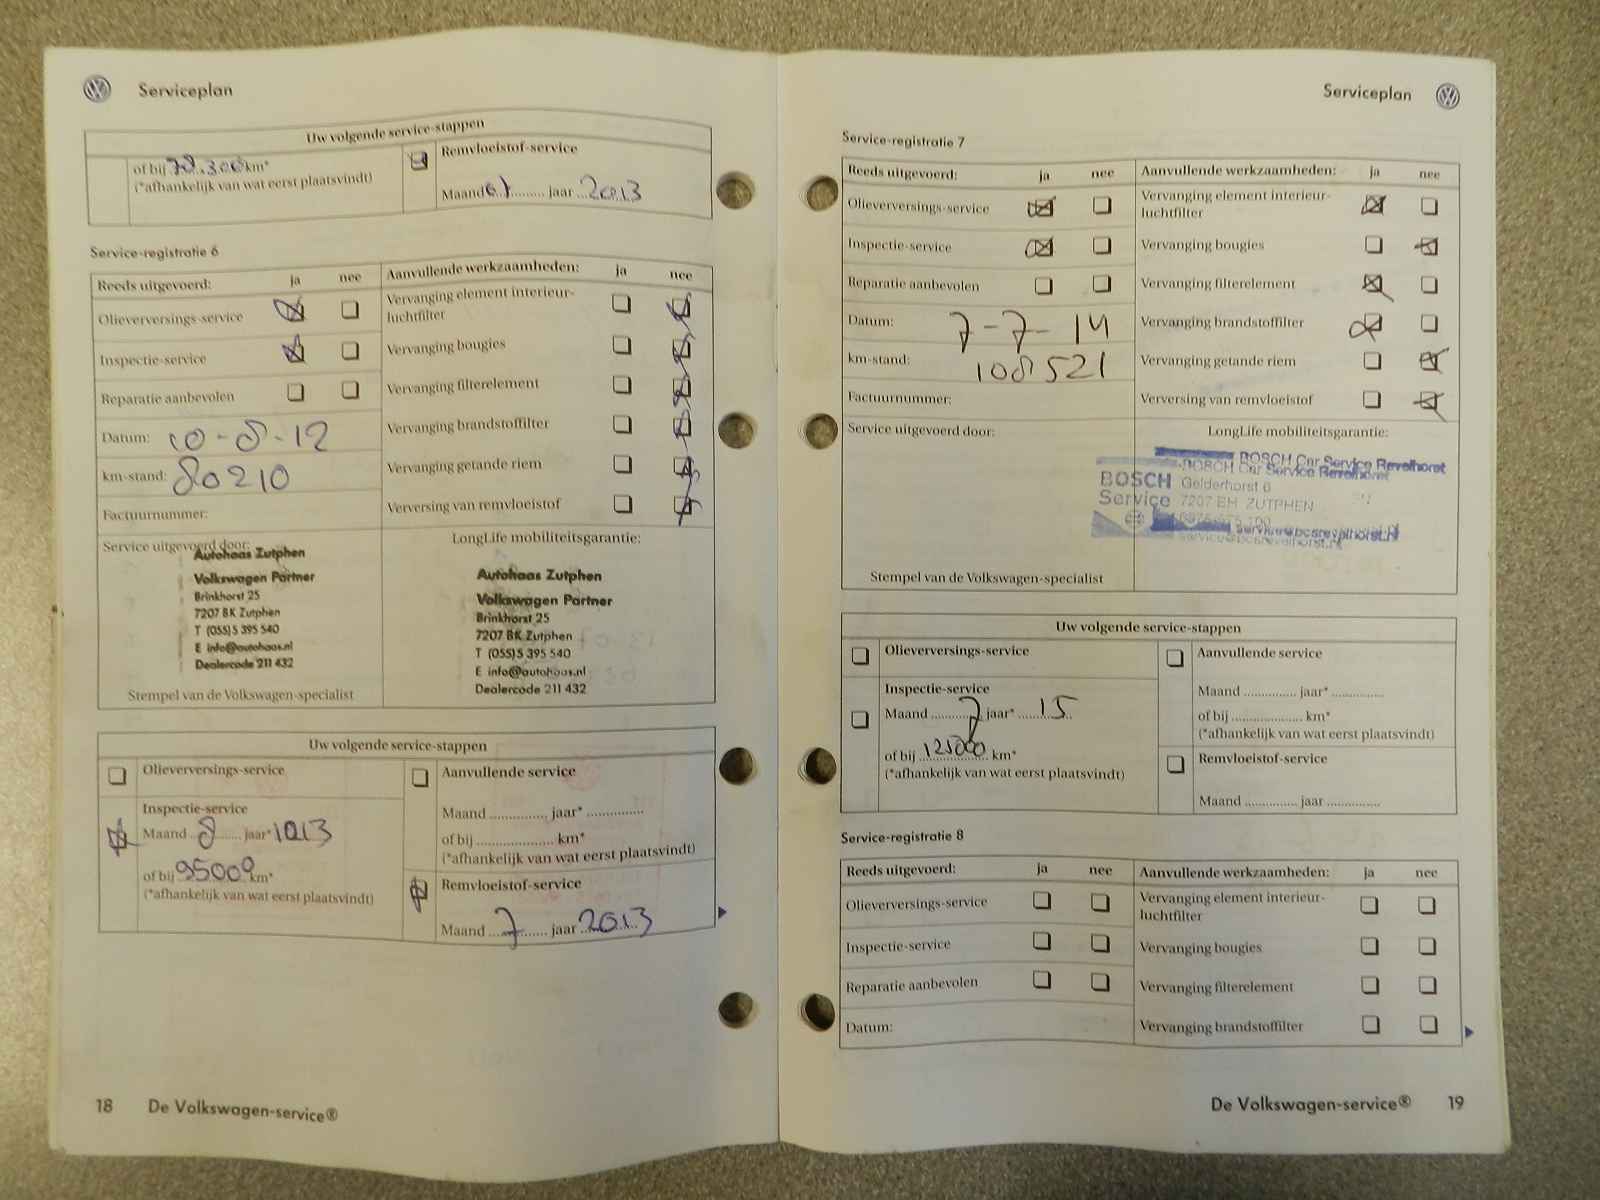 Serviceplan
Uw volgende service-stappen
of bij 78.300 km*
(*afhankelijk van wat eerst plaatsvindt)
Remvloeistof-service
Maand ......... jaar ..2013
Service-registratie 6
Reeds uitgevoerd: ja nee
Olieverversings-service
Inspectie-service
Reparatie aanbevolen
Datum: 10-8-12
km-stand: 80210
Factuurnummer:
Aanvullende werkzaamheden: ja nee
Vervanging element interieur-
luchtfilter
Vervanging bougies
Vervanging filterelement
Vervanging brandstoffilter
Vervanging getande riem
Verversing van remvloeistof
Service uitgevoerd door:
Autohaas Zutphen
Volkswagen Partner
Brinkhorst 25
7207 BK Zutphen
T (055) 5 395 540
E info@autohaas.nl
Dealercode 211 432
Stempel van de Volkswagen-specialist
LongLife mobiliteitsgarantie:
Autohaas Zutphen
Volkswagen Partner
Brinkhorst 25
7207 BK Zutphen
T (055) 5 395 540
E info@autohaas.nl
Dealercode 211 432
Uw volgende service-stappen
Olieverversings-service
Inspectie-service
Maand ..8...... jaar*
of bij 95000 km*
(*afhankelijk van wat eerst plaatsvindt)
Aanvullende service
Maand ............... jaar* ...............
of bij .................... km*
(*afhankelijk van wat eerst plaatsvindt)
Remvloeistof-service
Maand ...7....... jaar ..2013
18 De Volkswagen-service®
Serviceplan
Service-registratie 7
Reeds uitgevoerd: ja nee
Olieverversings-service
Inspectie-service
Reparatie aanbevolen
Datum: 7-7-14
km-stand: 108521
Factuurnummer:
Aanvullende werkzaamheden: ja nee
Vervanging element interieur-
luchtfilter
Vervanging bougies
Vervanging filterelement
Vervanging brandstoffilter
Vervanging getande riem
Verversing van remvloeistof
Service uitgevoerd door:
Stempel van de Volkswagen-specialist
LongLife mobiliteitsgarantie:
BOSCH Car Service Revelhorst
BOSCH Car Service Revelhorst
BOSCH Gelderhorst 6
Service 7207 EH ZUTPHEN
service@bcsrevelhorst.nl
service@bcsrevelhorst.nl
Uw volgende service-stappen
Olieverversings-service
Inspectie-service
Maand ........7 jaar* ...15....
of bij 125000 km*
(*afhankelijk van wat eerst plaatsvindt)
Aanvullende service
Maand .............. jaar* ..............
of bij .................... km*
(*afhankelijk van wat eerst plaatsvindt)
Remvloeistof-service
Maand .............. jaar ..............
Service-registratie 8
Reeds uitgevoerd: ja nee
Olieverversings-service
Inspectie-service
Reparatie aanbevolen
Datum:
Aanvullende werkzaamheden: ja nee
Vervanging element interieur-
luchtfilter
Vervanging bougies
Vervanging filterelement
Vervanging brandstoffilter
De Volkswagen-service® 19